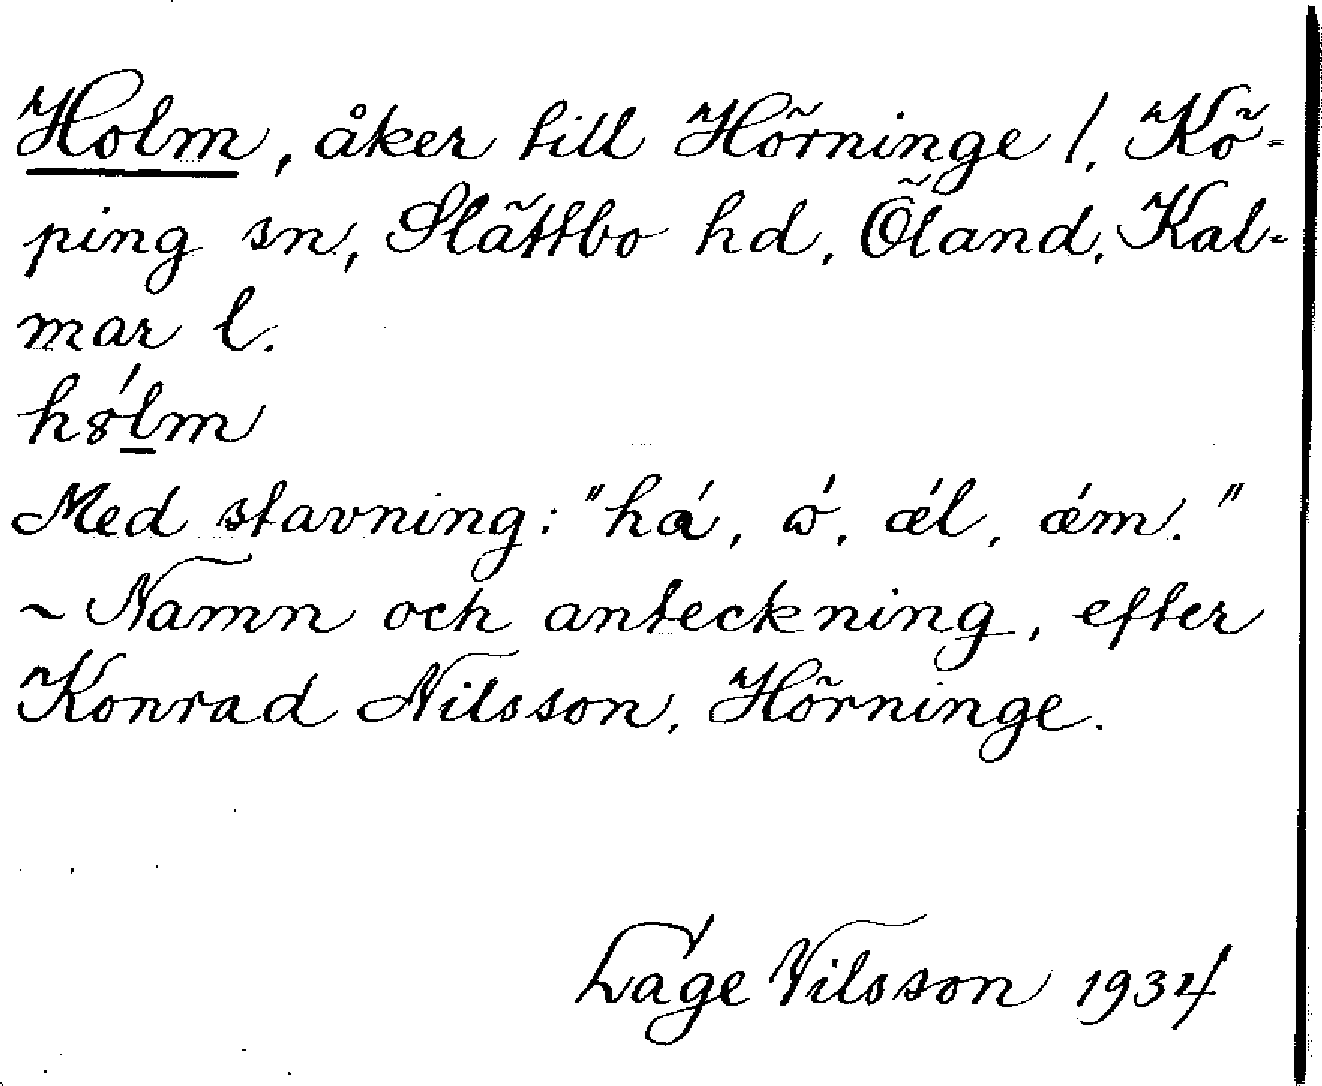 Holm, åker till Hörninge 1, Kö-
ping sn, Slättbo hd, Öland, Kal-
mar l.
hólm
Med stavning: "há, ó, ǽl, ǽm."
~ Namn och anteckning, efter
Konrad Nilsson, Hörninge.
Låge Nilsson 1934